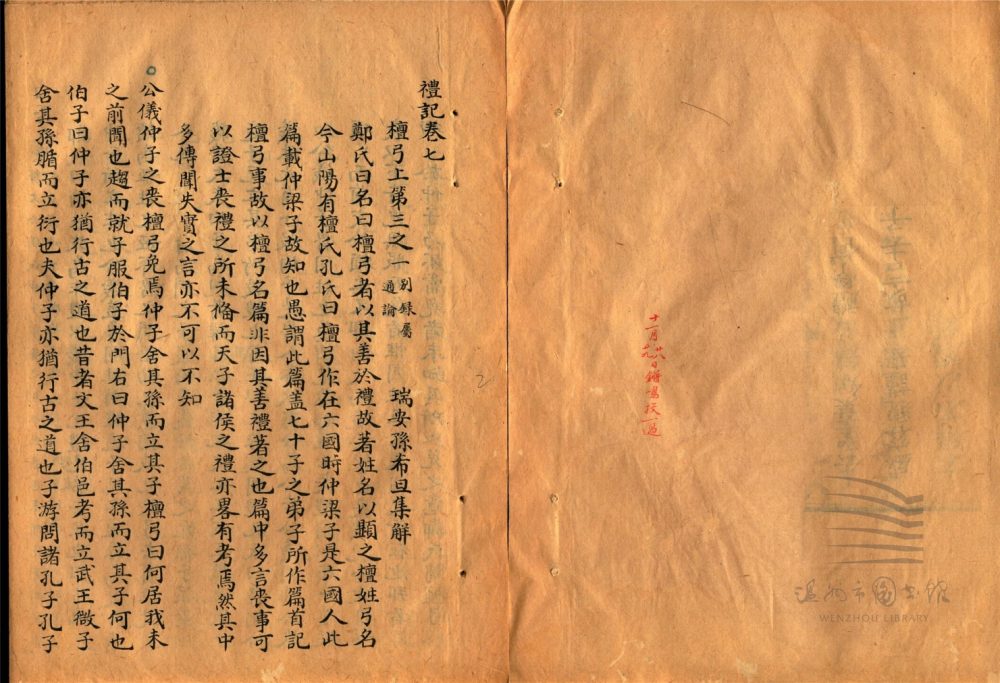 十一月日鏘鳴校一過
禮記卷七
檀弓上第三之一 別錄屬通論 瑞安孫希旦集解
鄭氏曰名曰檀弓者以其善於禮故著姓名以顯之檀姓弓名
今山陽有檀氏孔氏曰檀弓作在六國時仲梁子是六國人此
篇載仲梁子故知也愚謂此篇盖七十子之弟子所作篇首記
檀弓事故以檀弓名篇非因其善禮著之也篇中多言喪事可
以證士喪禮之所未偹而天子諸侯之禮亦畧有考焉然其中
多傳聞失實之言亦不可以不知
公儀仲子之喪檀弓免焉仲子舍其孫而立其子檀弓曰何居我未
之前聞也趨而就子服伯子於門右曰仲子舍其孫而立其子何也
伯子曰仲子亦猶行古之道也昔者文王舍伯邑考而立武王微子
舍其孫腯而立衍也夫仲子亦猶行古之道也子游問諸孔子孔子
温州市图书馆
WENZHOU LIBRARY